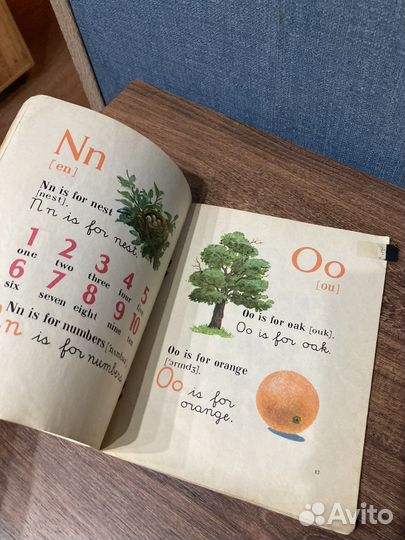 Nn
[en]
Nn is for nest
[nest].
Nn is for nest.
1 2 3 4 5
one two three four five
6 7 8 9 10
six seven eight nine ten
Nn is for numbers ['nʌmbəz]
Nn is for numbers.
Oo
[ou]
Oo is for oak [ouk].
Oo is for oak.
Oo is for orange
['ɔrindʒ].
Oo is for
orange.
17
Avito